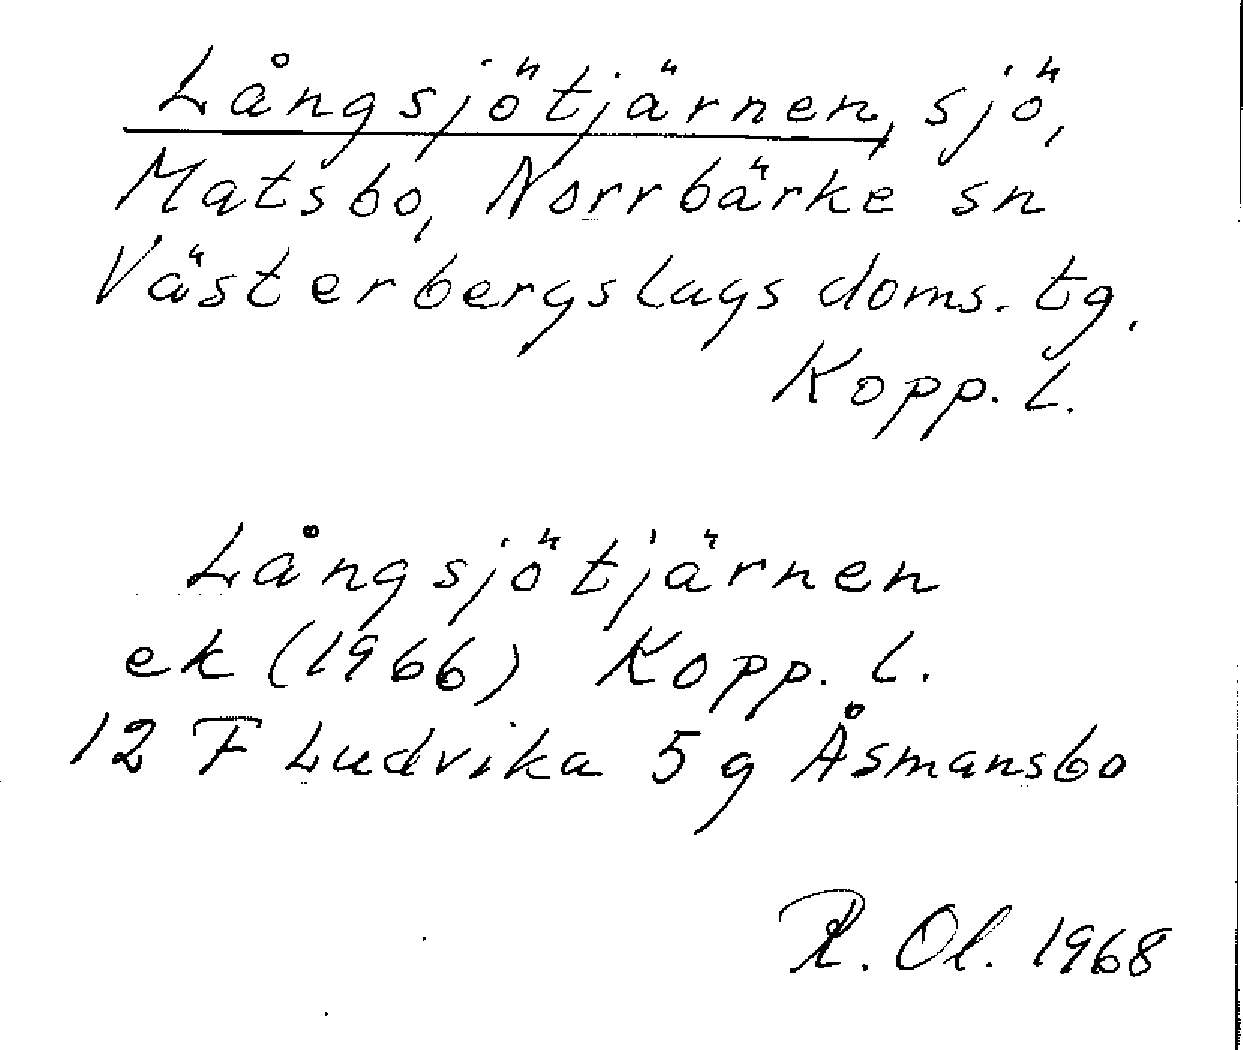 Långsjötjärnen, sjö,
Matsbo, Norrbärke sn
Västerbergslags doms. tg.
Kopp. l.
Långsjötjärnen
ek (1966) Kopp. l.
12 F Ludvika 5 g Åsmansbo
R. Ol. 1968